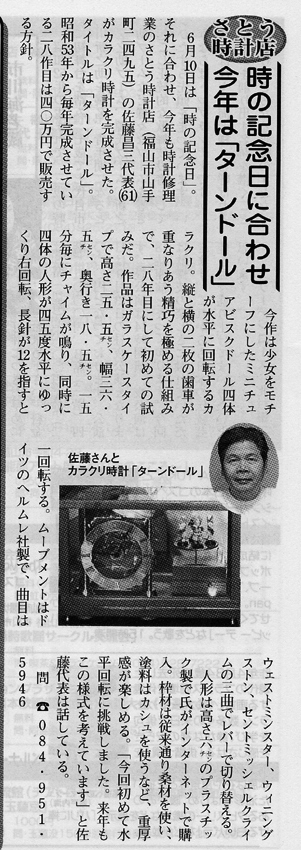 さとう
時計店
時の記念日に合わせ
今年は「ターンドール」
6月10日は「時の記念日」。
それに合わせ、今年も時計修理
業のさとう時計店（福山市山手
町二四九五）の佐藤昌三代表(61)
がカラクリ時計を完成させた。
タイトルは「ターンドール」。
昭和53年から毎年完成させてい
る二八作目は四〇万円で販売す
る方針。
今作は少女をモチ
ーフにしたミニチュ
アビスクドール四体
が水平に回転するカ
ラクリ。縦と横の二枚の歯車が
重なりあう精巧を極める仕組み
で、二八年目にして初めての試
みだ。作品はガラスケースタイ
プで高さ二五・五㌢、幅三六・
五㌢、奥行き一八・五㌢。一五
分毎にチャイムが鳴り、同時に
四体の人形が四五度水平にゆっ
くり右回転、長針が12を指すと
佐藤さんと
カラクリ時計「ターンドール」
一回転する。ムーブメントはド
イツのヘルムレ社製で、曲目は
ウェストミンスター、ウィニング
ストン、セントミッシェルクライ
ムの三曲でレバーで切り替える。
人形は高さ八㌢のプラスチッ
ク製で氏がインターネットで購
入。枠材は従来通り桑材を使い、
塗料はカシュを使うなど、重厚
感が楽しめる。「今回初めて水
平回転に挑戦しました。来年も
この様式を考えています」と佐
藤代表は話している。
問☎084・951
5946